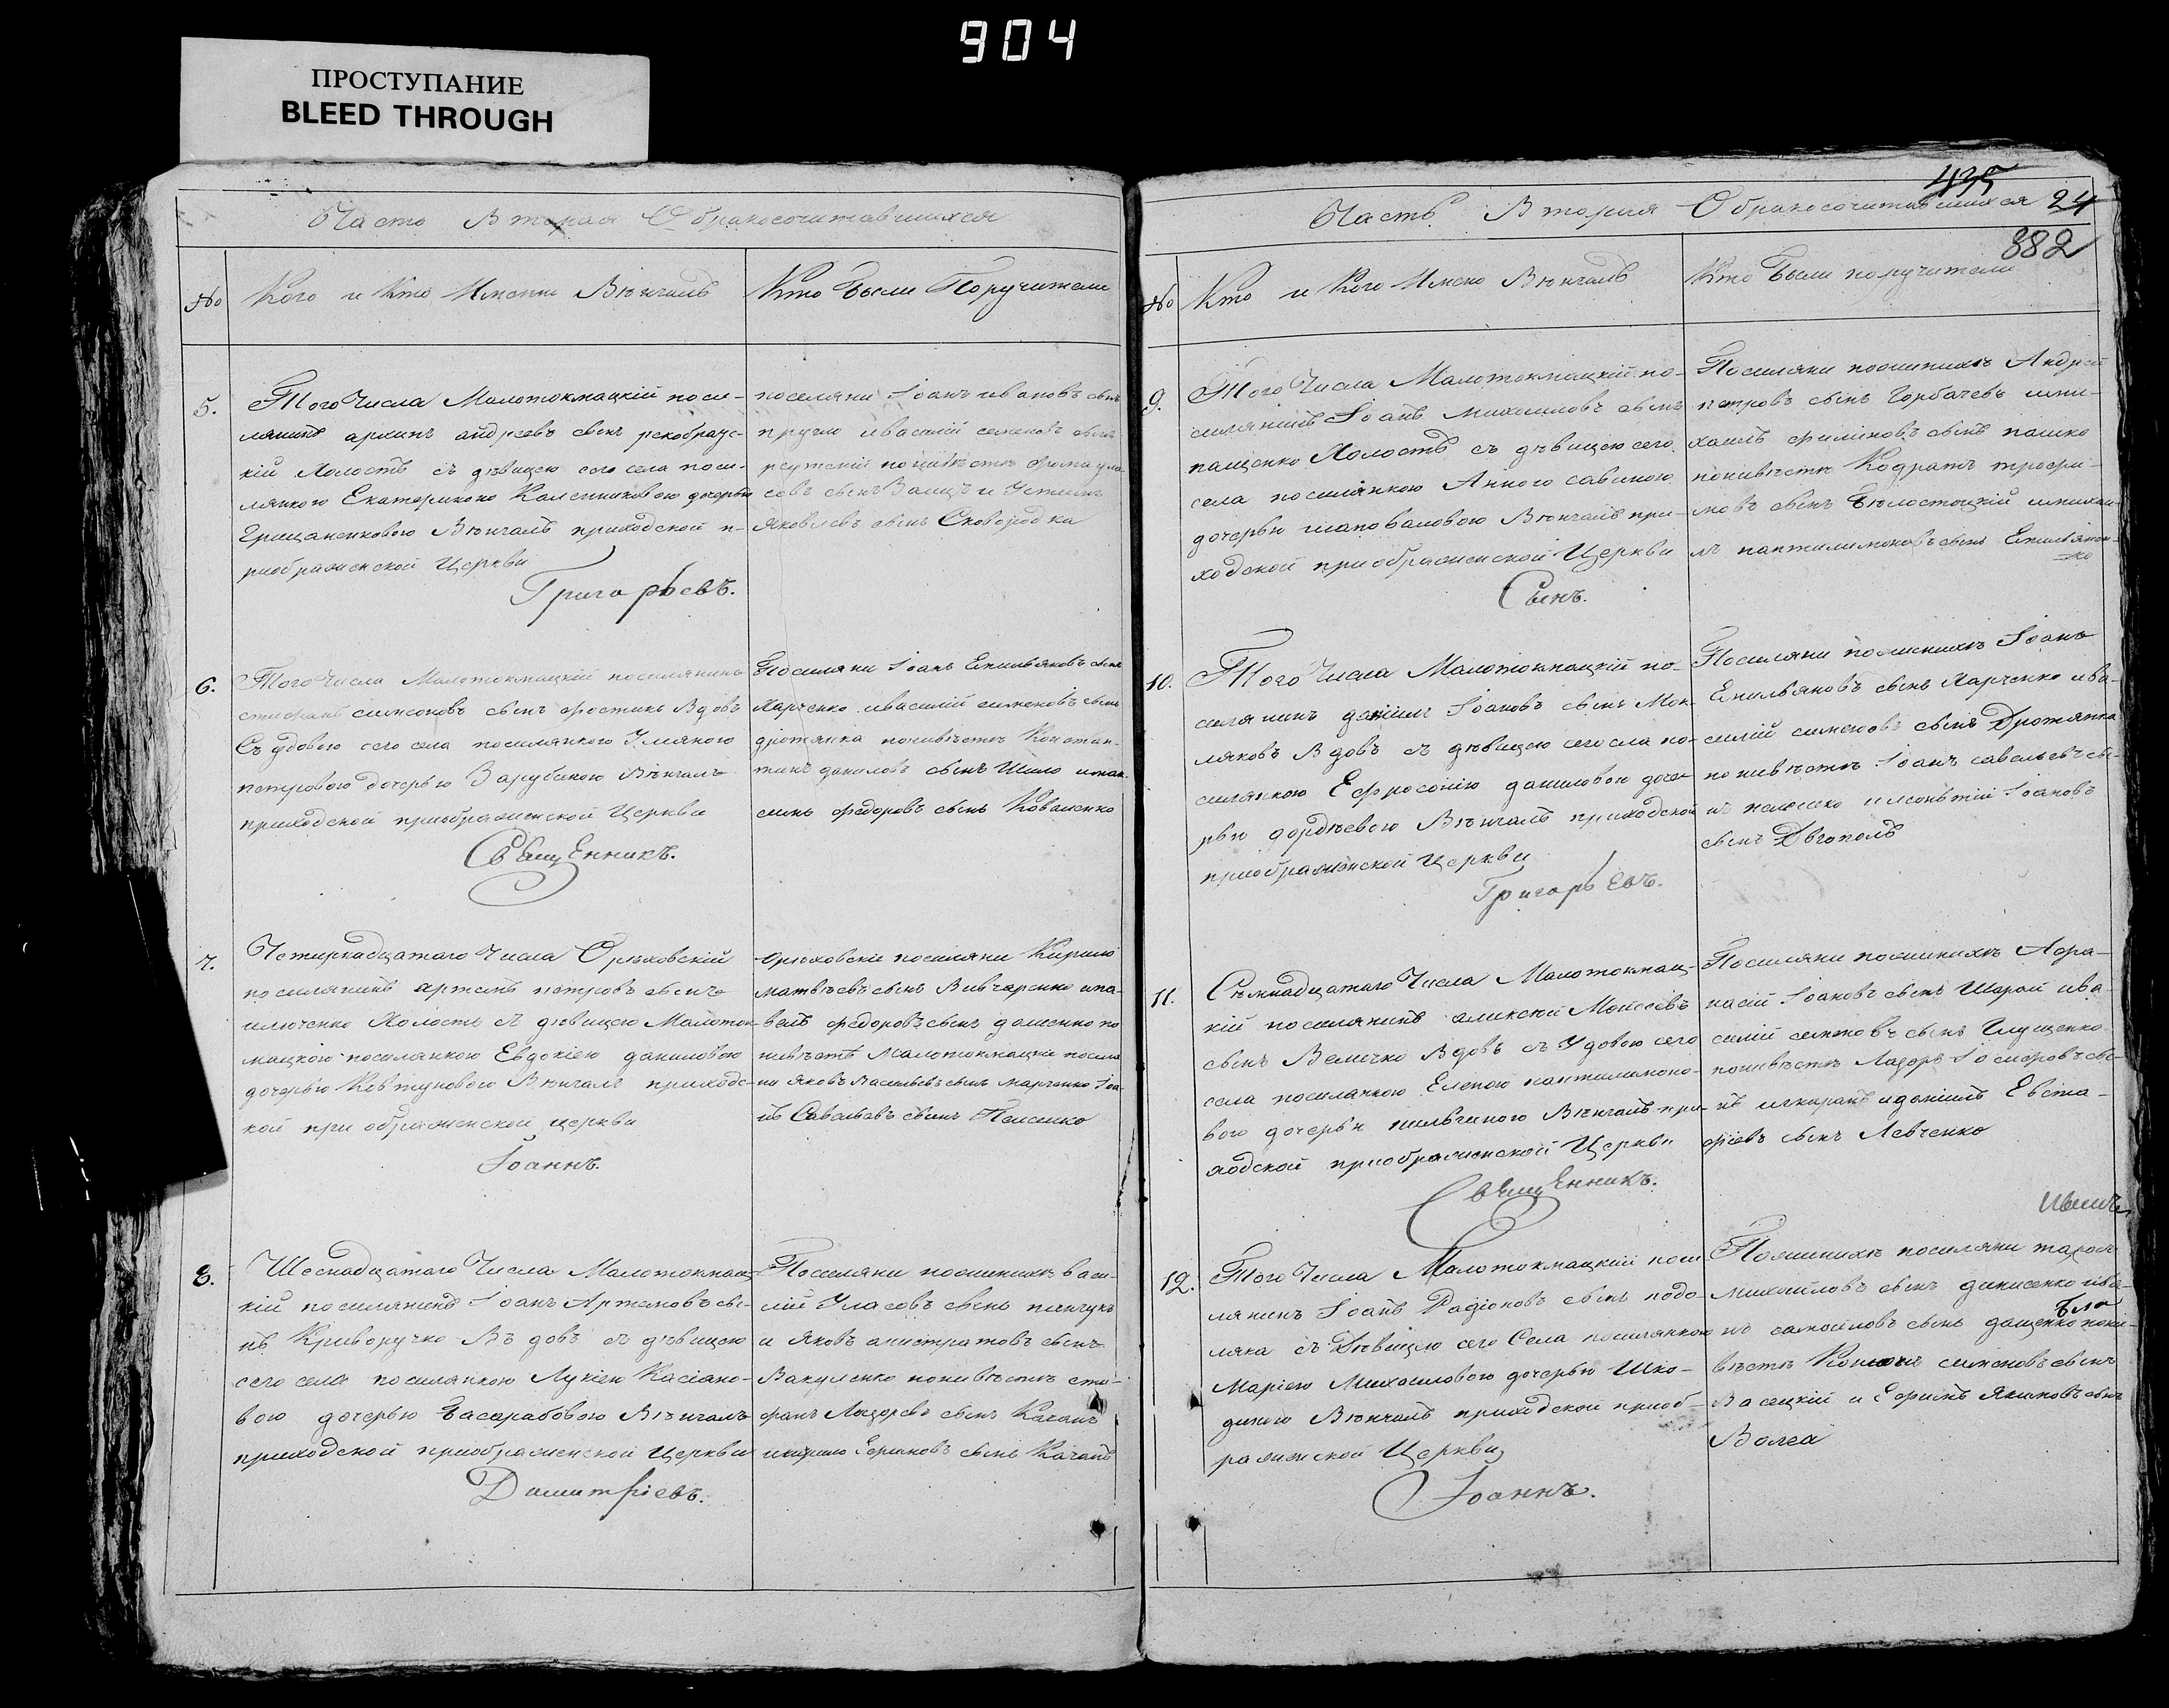 904
ПРОСТУПАНИЕ
BLEED THROUGH
Часть Вторая О бракосочитавшихся
№ Кого и Кто Именно Вѣнчалъ
Кто Были Поручители
5. Того Числа Малотокмацкій посе-
лянинъ архипъ андреевъ сынъ
кій Холостъ съ дѣвицею сего села посе-
лянкою Екатериною дочерью
Грицаненковою Вѣнчалъ приходской п-
риображенской Церкви
Григорьевъ.
поселяни Іоанъ ивановъ сынъ
ивасилій семеновъ сынъ
понивѣстѣ
сынъ Заицъ и Устинъ
Яковлевъ сынъ Сковородка
6. Того Числа Малотокмацкій поселянинъ
стифанъ симеоновъ сынъ Вдовъ
Съ удовою сего села поселянкою Уляною
петровою дочерью Зарубиною Вѣнчалъ
приходской приображенской Церкви
СвЯщЕнникъ.
Поселяни Іоанъ Емильяновъ сынъ
Харченко ивасилій симеоновъ сынъ
дротянка понивѣстѣ Констан-
тинъ даниловъ сынъ Шило
федоровъ сынъ Коваленко
7. Четирнадцатаго Числа Орѣховскій
поселянинъ артемъ петровъ сынъ
Холостъ съ дѣвицею Малоток-
мацкою поселянкою Евдокіею даниловою
дочерью Ковтуновою Вѣнчалъ приходс-
кой приображенской церкви
Іоаннъ.
Орѣховскіе поселяни Кирило
матвѣевъ сынъ Вивчаренко ипа-
велъ федоровъ сынъ доменко по
нивѣстѣ Малотокмацкіе поселя
ни яковъ Васильевъ сынъ марченко Іоа-
нъ Савельевъ сынъ
8. Шеснадцатаго Числа Малотокмац-
кій поселянинъ Іоанъ Артемовъ сы-
нъ Криворучко Въ довъ съ дѣвицею
сего села поселянкою Лукіею Касіано-
вою дочерью Басарабовою Вѣнчалъ
приходской приображенской Церкви
Димитріевъ.
Поселяни поженихѣ васи-
лій Уласовъ сынъ панчукъ
и Яковъ сынъ
Вакуленко понивѣстѣ сти-
фанъ Лазоревъ сынъ Качанъ
икирило Ефимовъ сынъ Качанъ
435
24
882
Часть Вторая О бракосочитавшихся
№ Кто и Кого Имено Вѣнчалъ
Кто Были поручители
9. Того Числа Малотокмацкій по-
селянинъ Іоанъ михаиловъ сынъ
пащенко Холостъ съ дѣвицею сего
села поселянкою Анною савиною
дочерью шаповаловою Вѣнчалъ при-
ходской приображенской Церкви
Сынъ.
Поселяни поженихѣ Андрей
петровъ сынъ Горбачевъ ими-
хаилъ филиповъ сынъ пашко
понивѣстѣ Кодратъ трофи-
мовъ сынъ Бѣлостоцкій имихаи-
лъ пантилимоновъ сынъ Емильянен-
ко
10. Того Числа Малотокмацкій по-
селянинъ даніилъ Іоановъ сынъ Мок-
ляковъ Вдовъ съ дѣвицею сего села по-
селянкою Ефросоніею даниловою доче-
рью гордѣевою Вѣнчалъ приходской
приображенской Церкви
Григорьевъ.
Поселяни поженихѣ Іоанъ
Емильяновъ сынъ Харченко ива-
силій симеоновъ сынъ Дротянка
понивѣстѣ Іоанъ савельевъ сы-
нъ илеонтій Іоановъ
сынъ
11. Съмнадцатаго Числа Малотокмац-
кій поселянинъ аликсій Моісеевъ
сынъ Величко Вдовъ съ Удовою сего
села поселянкою Еленою пантилимоно-
вою дочерью Вѣнчалъ при-
ходской приображенской Церкви
СвЯщЕнникъ.
Поселяни поженихѣ Афа-
насій Іоановъ сынъ Шарай ива-
силій сынъ Глущенко
понивѣстѣ Лазоръ Іосифовъ сы-
нъ идоніилъ Евста-
фіевъ сынъ Левченко
12. Того Числа Малотокмацкій посе
лянинъ Іоанъ Радіоновъ сынъ подо
ляка съ Дѣвицею сего Села поселянкою
Маріею Михаиловою дочерью Шко-
диною Вѣнчалъ приходской приоб-
раженской Церкви
Іоаннъ.
Поженихѣ поселяни тарасъ
михаиловъ сынъ динисенко ива-
нъ самоиловъ сынъ дащенко пони-
вѣстѣ симеоновъ сынъ
Васецкій и Ефимъ Якимовъ сынъ
Волга